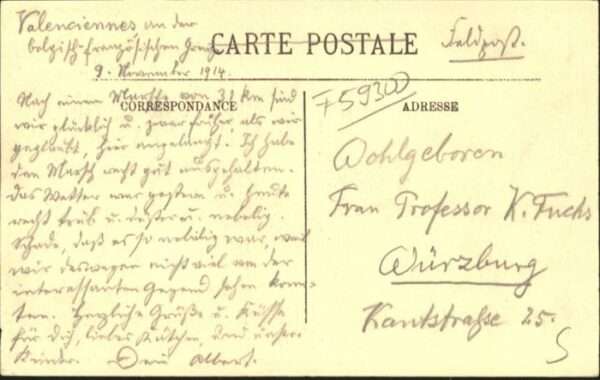 Valenciennes an der
belgisch-französischen Grenze
9. November 1914.
CARTE POSTALE
Feldpost.
CORRESPONDANCE
F59300
ADRESSE
Nach einem Marsche von 31 km sind
wir glücklich u. zwar früher, als wir
geglaubt, hier angelangt. Ich habe
den Marsch recht gut ausgehalten.
Das Wetter war gestern u. heute
recht trüb u. düster u. nebelig.
Schade, daß es so neblig war, weil
wir deswegen nicht viel von der
interessanten Gegend sehen konn-
ten. Herzliche Grüße u. Küsse
für Dich, liebes Kätchen, und unsere
Kinder. Dein Albert.
Wohlgeboren
Frau Professor K. Fuchs
Würzburg
Kantstraße 25.